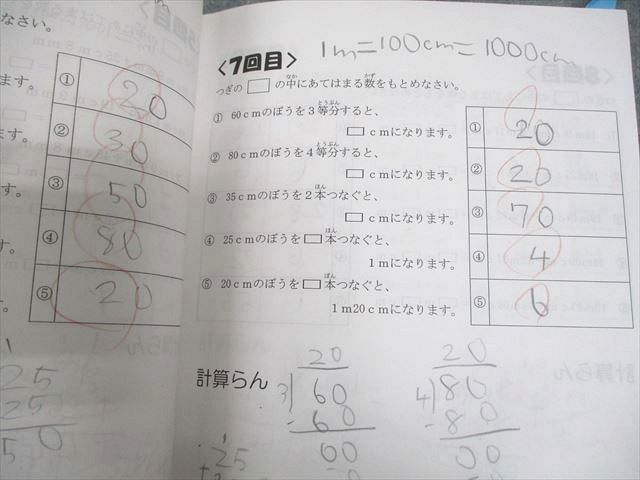 なさい。
ます。
ます。
ます。
ます。
ます。
① 20
② 30
③ 50
④ 80
⑤ 20
25
25
50
1m=100cm=1000cm
〈7回目〉
つぎの□の中にあてはまる数をもとめなさい。
① 60cmのぼうを3等分すると、
□cmになります。
② 80cmのぼうを4等分すると、
□cmになります。
③ 35cmのぼうを2本つなぐと、
□cmになります。
④ 25cmのぼうを□本つなぐと、
1mになります。
⑤ 20cmのぼうを□本つなぐと、
1m20cmになります。
① 20
② 20
③ 70
④ 4
⑤ 6
計算らん
20
3)60
-60
00
20
4)80
-80
00
25